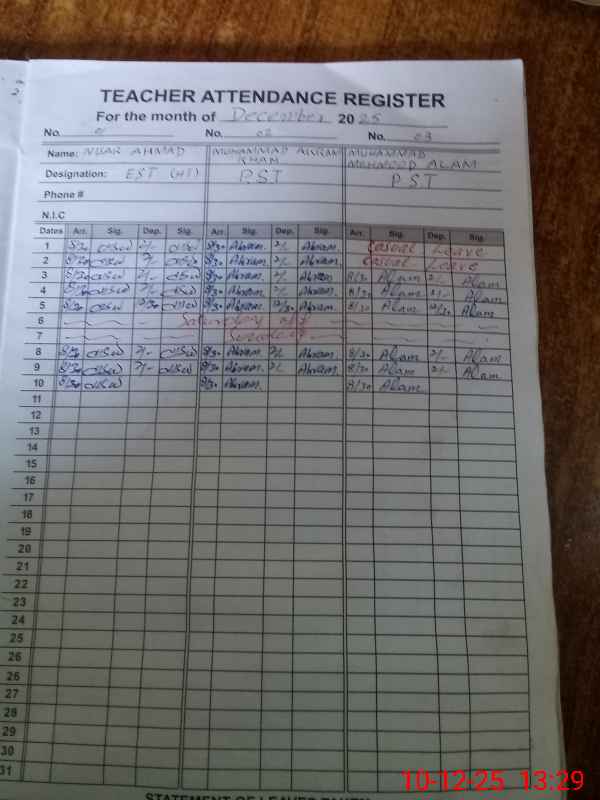 TEACHER ATTENDANCE REGISTER
For the month of December 2025
No. 01 No. 02 No. 03
Name: AHMAD MUHAMMAD AKRAM KHAN MUHAMMAD MEHMOOD ALAM
Designation: EST (HT) PST PST
Phone #
N.I.C
Dates Arr. Sig. Dep. Sig. Arr. Sig. Dep. Sig. Arr. Sig. Dep. Sig.
1 8/30 2/- 8/30 Akram. 2/- Akram. Casual Leave
2 8/30 2/- 8/30 Akram. 2/- Akram. Casual Leave
3 8/30 2/- 8/30 Akram. 2/- Akram 8/30 Alam 2/- Alam
4 8/30 2/- 8/30 Akram. 2/- Akram. 8/30 Alam 2/- Alam
5 8/30 12/30 8/30 Akram. 12/30 Akram. 8/30 Alam 12/30 Alam
6 Saturday
7 Sunday
8 8/30 2/- 8/30 Akram. 2/- Akram. 8/30 Alam 2/- Alam
9 8/30 2/- 8/30 Akram. 2/- Akram. 8/30 Alam 2/- Alam
10 8/30 8/30 Akram. 8/30 Alam
11
12
13
14
15
16
17
18
19
20
21
22
23
24
25
26
26
27
28
29
30
31
10-12-25 13:29
STATEMENT OF LEAVES TAKEN